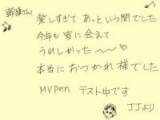 幹事さん
楽しすぎて あっという間でした
今年も皆に会えて
うれしかった〜〜♡
本当におつかれ様でした
MVPen テスト中です
JJより